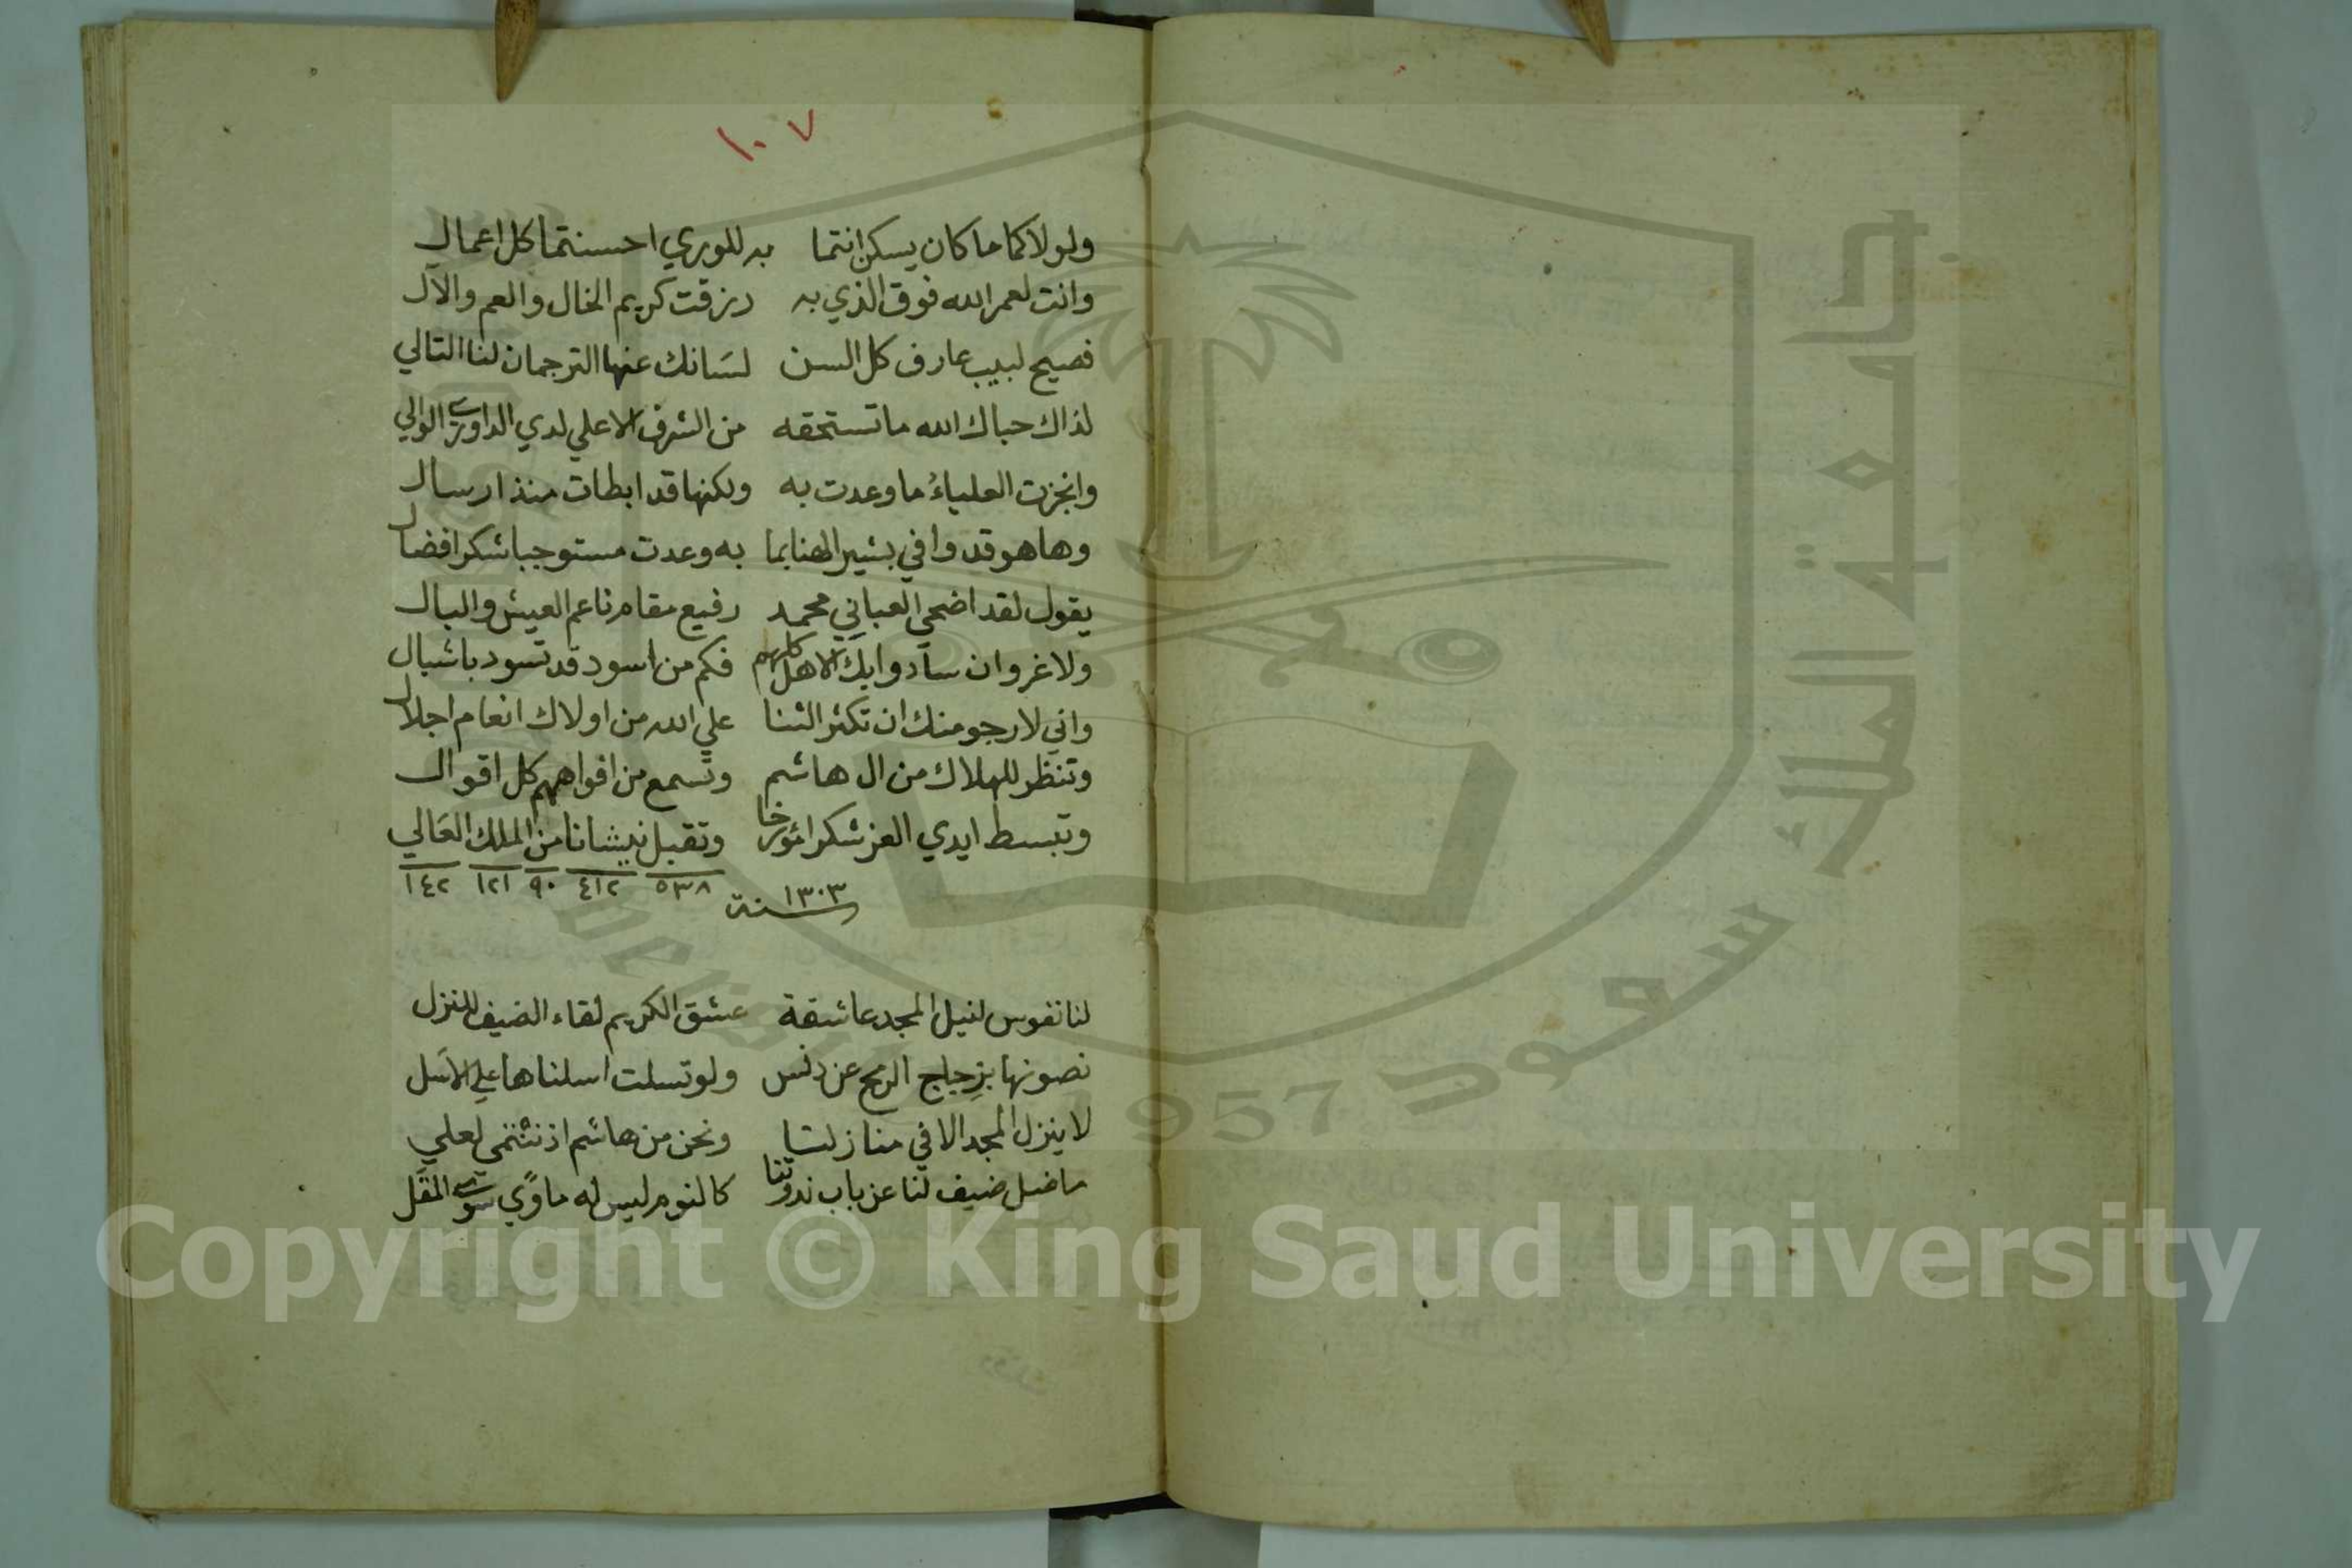 ١٠٧
ولولاكما ما كان يسكن انتما به للوري احسنتما كل اعمال
وانت لعمر الله فوق الذي به رزقت كريم الخال والعم والآل
فصيح لبيب عارف كل السن لسَانك عنها الترجمان لنا التالي
لذاك حباك الله ما تستحقه من الشرف الاعلي لدي الداوري الوالي
وانجزت العلياءُ ما وعدت به ولكنها قد ابطات منذ ارسال
وها هو قد وافي بشير الهنا بما به وعدت مستوجبا شكر افضال
يقول لقد اضحي العباني محمد رفيع مقام ناعم العيش والبال
ولا غرو ان سادوا بك الاهل كلهم فكم من اسود قد تسود باشبال
واني لارجو منك ان تكثر الثنا علي الله من اولاك انعام اجلال
وتنظر للهلاك من ال هاشم وتسمع من افواههم كل اقوال
وتبسط ايدي العز شكرا مؤرخا وتقبل نيشانا من الملك العَالي
٥٣٨ ٤١٢ ٩٠ ١٢١ ١٤٢
سنة ١٣٠٣
لنا نفوس لنيل المجد عاشقة عشق الكريم لقاء الضيف للنزل
نصونها بزجاج الرمح عن دنس ولو تسلت اسلناها علي الاسَل
لا ينزل المجد الا في منازلنا ونحن من هاشم اذ ننتمي لعلي
ما ضل ضيف لنا عن باب ندوتنا كالنوم ليس له ماوًي سوي المقَل
جامعة الملك سعود
1957
Copyright © King Saud University